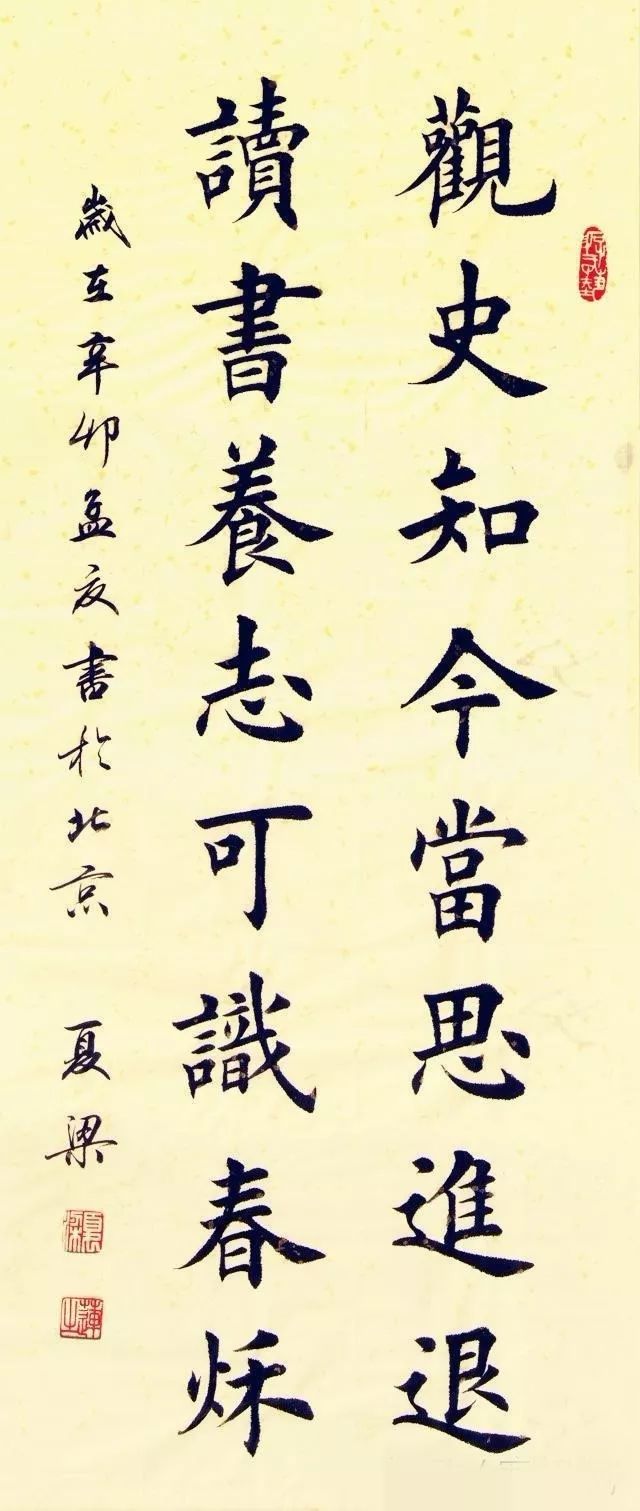 觀史知今當思進退
讀書養志可識春秌
歲在辛卯孟夏書於北京 夏梁
夏梁